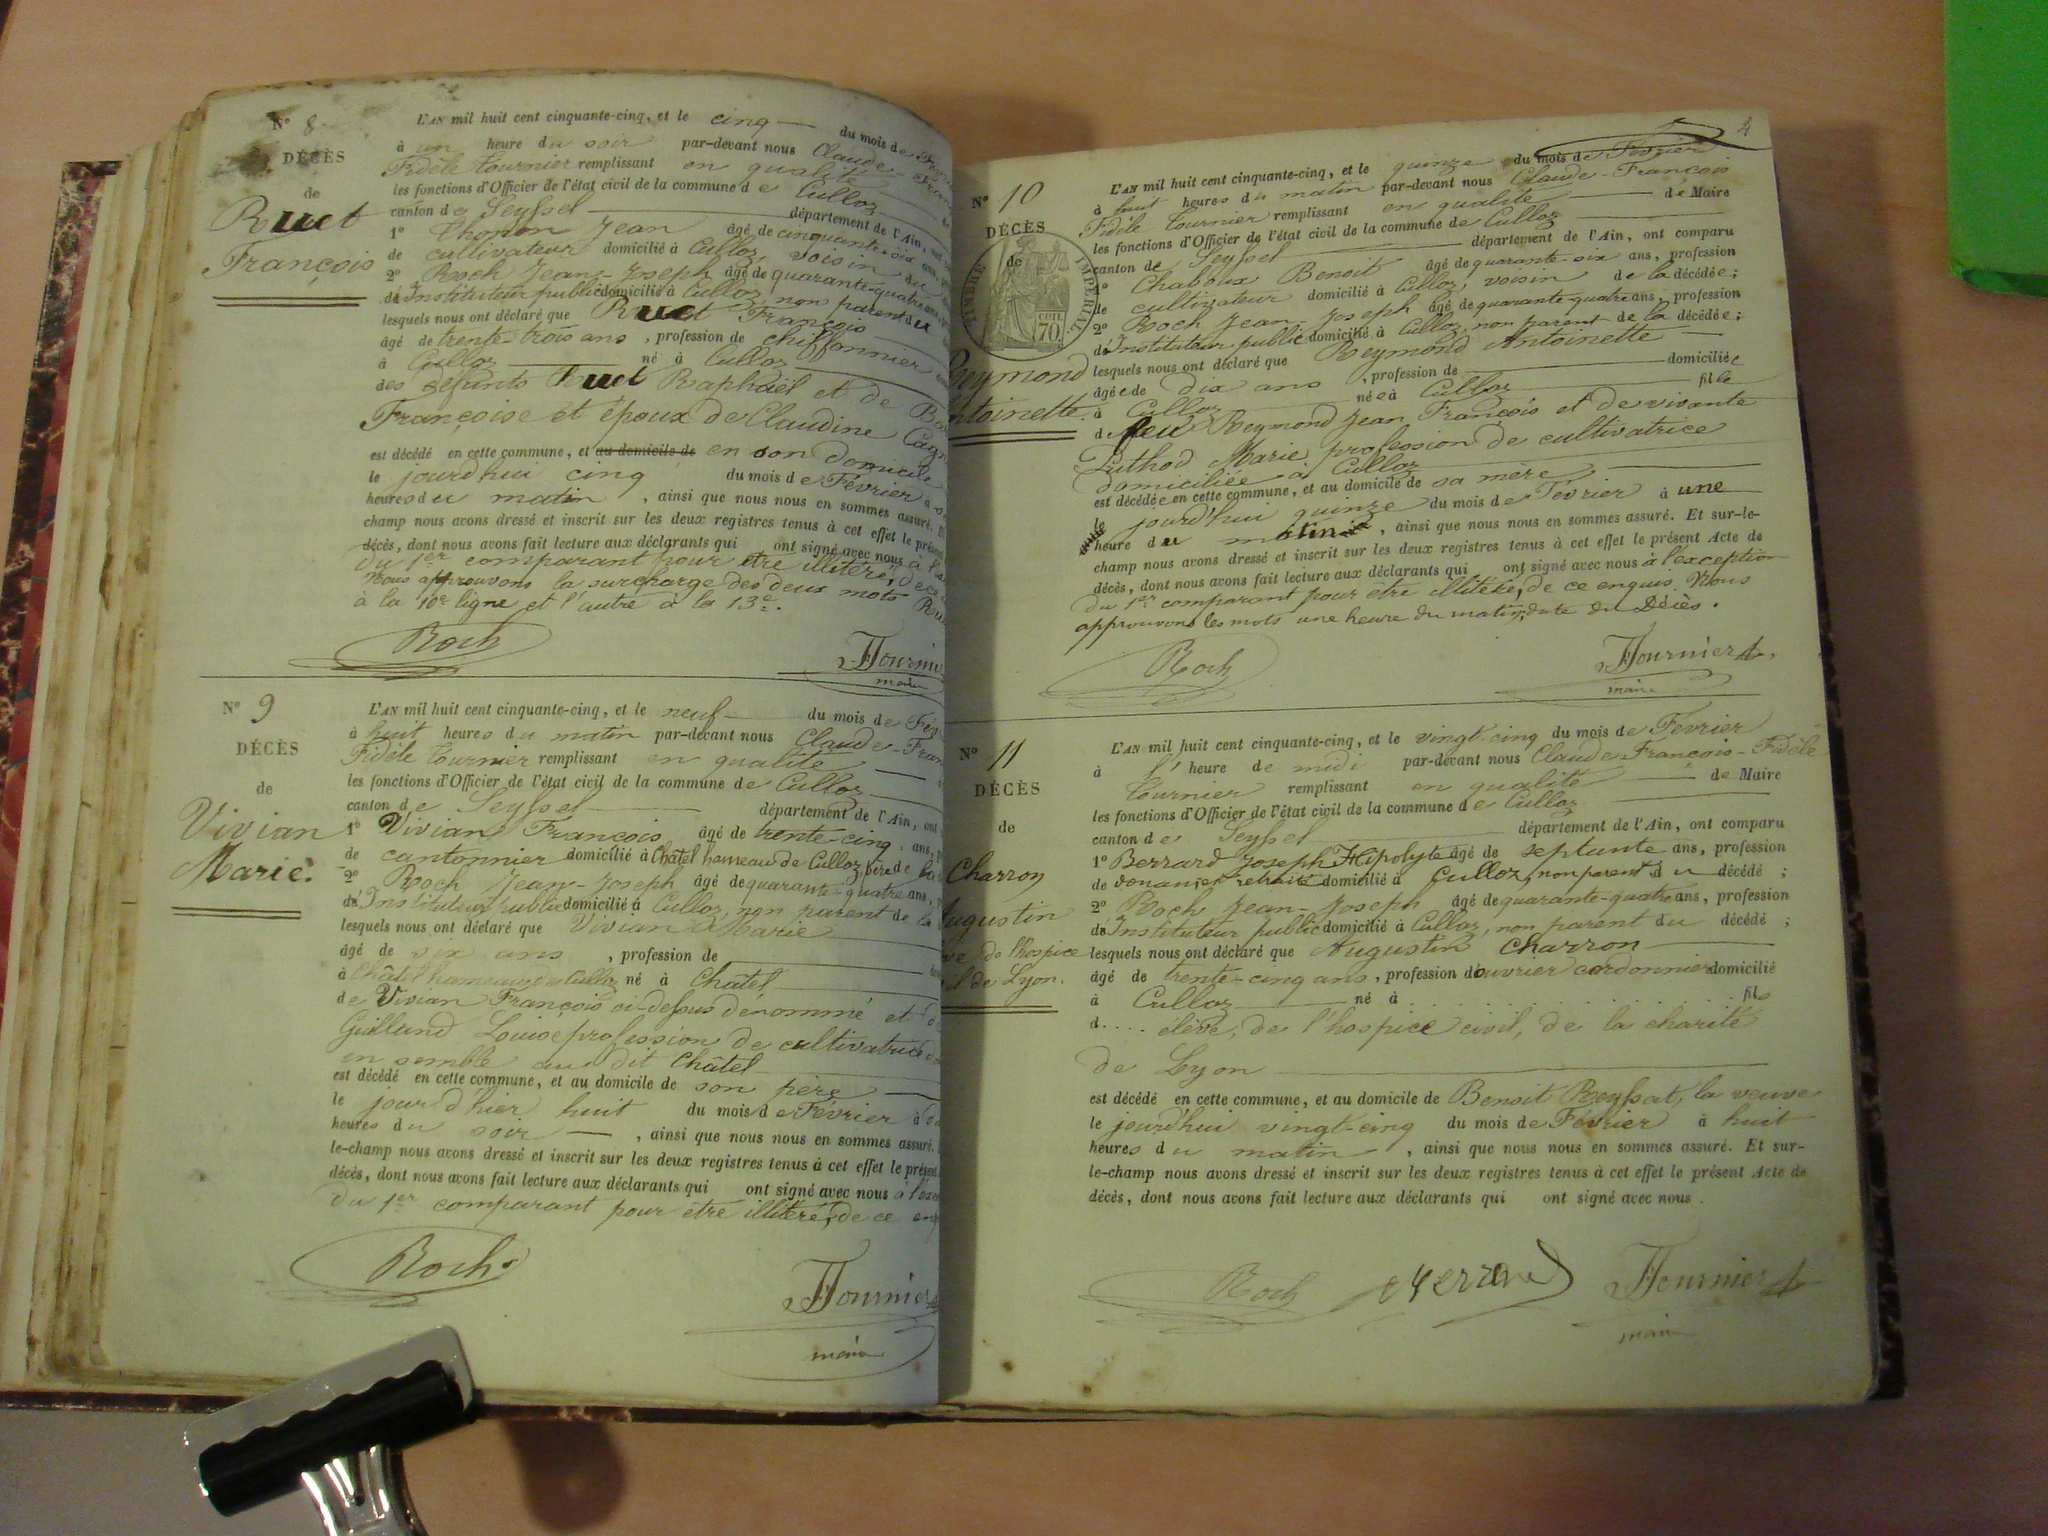 N° 8
DÉCÈS
de
Ruet
François
L'AN mil huit cent cinquante-cinq, et le cinq du mois de
à un heure du soir par-devant nous Claude-
Fidèle Tournier remplissant en qualité
les fonctions d'Officier de l'état civil de la commune de Culloz
canton de Seyssel département de l'Ain,
1° Thonon Jean âgé de cinquante-six
de cultivateur domicilié à Culloz, voisin du
2° Roch Jean-Joseph âgé de quarante-quatre
de Instituteur public domicilié à Culloz, non parent du
lesquels nous ont déclaré que Ruet François
âgé de trente-trois ans, profession de chiffonnier
à Culloz né à Culloz
des défunts Ruet Raphaël et de
Françoise et époux de Claudine
est décédé en cette commune, et au domicile de en son domicile
le jourd'hui cinq du mois de Février
heures du matin, ainsi que nous nous en sommes assuré.
champ nous avons dressé et inscrit sur les deux registres tenus à cet effet le présent
décès, dont nous avons fait lecture aux déclarants qui ont signé avec nous à
du 1er comparant pour être illitéré, de ce
Nous approuvons la surcharge des deux mots
à la 10e ligne et l'autre à la 13e.
Roch Tournier
maire
N° 9
DÉCÈS
de
Vivian
Marie.
L'AN mil huit cent cinquante-cinq, et le neuf du mois de
à huit heures du matin par-devant nous Claude-
Fidèle Tournier remplissant en qualité
les fonctions d'Officier de l'état civil de la commune de Culloz
canton de Seyssel département de l'Ain, ont
1° Vivian François, âgé de trente-cinq ans,
de cantonnier domicilié à Châtel hameau de Culloz, père de la
2° Roch Jean-Joseph âgé de quarante-quatre ans,
de Instituteur public domicilié à Culloz, non parent de la
lesquels nous ont déclaré que Vivian Marie
âgé de six ans, profession de
à Châtel hameau de Culloz né à Châtel
de Vivian François ci-dessus dénommé et
Guilland Louise profession de cultivatrice
ensemble au dit Châtel
est décédé en cette commune, et au domicile de son père
le jour d'hier huit du mois de Février à
heures du soir, ainsi que nous nous en sommes assuré.
le-champ nous avons dressé et inscrit sur les deux registres tenus à cet effet le présent
décès, dont nous avons fait lecture aux déclarants qui ont signé avec nous à
du 1er comparant pour être illitéré, de ce
Roch Tournier
maire
4
N° 10
DÉCÈS
de
TIMBRE IMPÉRIAL
70
Reymond
Antoinette
L'AN mil huit cent cinquante-cinq, et le quinze du mois de Février
à huit heures du matin par-devant nous Claude-François
Fidèle Tournier remplissant en qualité de Maire
les fonctions d'Officier de l'état civil de la commune de Culloz
canton de Seyssel département de l'Ain, ont comparu
1° Chaboux Benoit âgé de quarante-six ans, profession
de cultivateur domicilié à Culloz, voisin de la décédée;
2° Roch Jean-Joseph âgé de quarante-quatre ans, profession
de Instituteur public domicilié à Culloz, non parent de la décédée;
lesquels nous ont déclaré que Reymond Antoinette
âgée de dix ans, profession de domiciliée
à Culloz née à Culloz fille
de feu Reymond Jean François et de vivante
Marie profession de cultivatrice
domiciliée à Culloz
est décédée en cette commune, et au domicile de sa mère
le jourd'hui quinze du mois de Février à une
heure du matin, ainsi que nous nous en sommes assuré. Et sur-le-
champ nous avons dressé et inscrit sur les deux registres tenus à cet effet le présent Acte de
décès, dont nous avons fait lecture aux déclarants qui ont signé avec nous à l'exception
du 1er comparant pour être illitéré, de ce enquis. Nous
approuvons les mots une heure du matin, date du Décès.
Roch Tournier
maire
N° 11
DÉCÈS
de
Charron
Augustin
de l'hospice
de Lyon.
L'AN mil huit cent cinquante-cinq, et le vingt-cinq du mois de Février
à l'heure de midi par-devant nous Claude-François-Fidèle
Tournier remplissant en qualité de Maire
les fonctions d'Officier de l'état civil de la commune de Culloz
canton de Seyssel département de l'Ain, ont comparu
1° Berrard Joseph Hipolyte âgé de septante ans, profession
de douanier retraité domicilié à Culloz, non parent du décédé;
2° Roch Jean-Joseph âgé de quarante-quatre ans, profession
de Instituteur public domicilié à Culloz, non parent du décédé;
lesquels nous ont déclaré que Augustin Charron
âgé de trente-cinq ans, profession d'ouvrier cordonnier domicilié
à Culloz né à . . . . fils
d.... élève, de l'hospice civil, de la charité
de Lyon
est décédé en cette commune, et au domicile de Benoit Reyssat, la veuve
le jourd'hui vingt-cinq du mois de Février à huit
heures du matin, ainsi que nous nous en sommes assuré. Et sur-
le-champ nous avons dressé et inscrit sur les deux registres tenus à cet effet le présent Acte de
décès, dont nous avons fait lecture aux déclarants qui ont signé avec nous.
Roch Berrard Tournier
maire